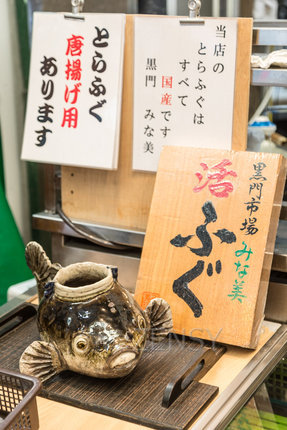 とらふぐ
唐揚げ用
あります
当店の
とらふぐは
すべて
国産です
黒門 みな美
黒門市場
みな美
活
ふぐ